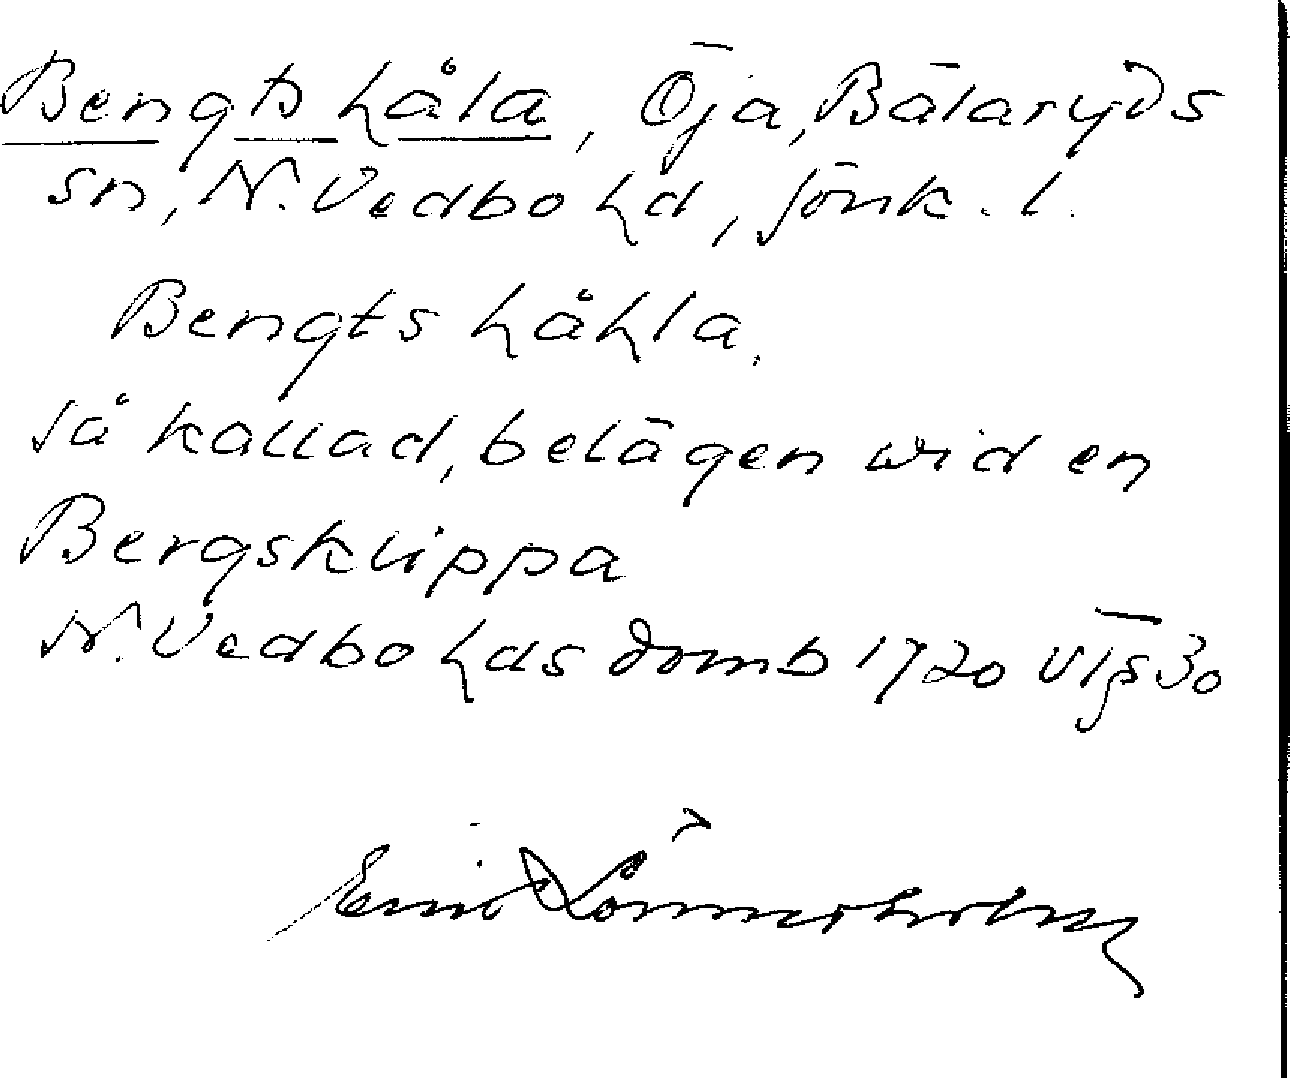 Bengts håla, Öja, Bälaryds
sn, N. Vedbo hd, Jönk. l.
Bengts håhla.
så kallad, belägen wid en
Bergsklippa
N. Vedbo hds domb 1720 30
Emil Lönnerholm